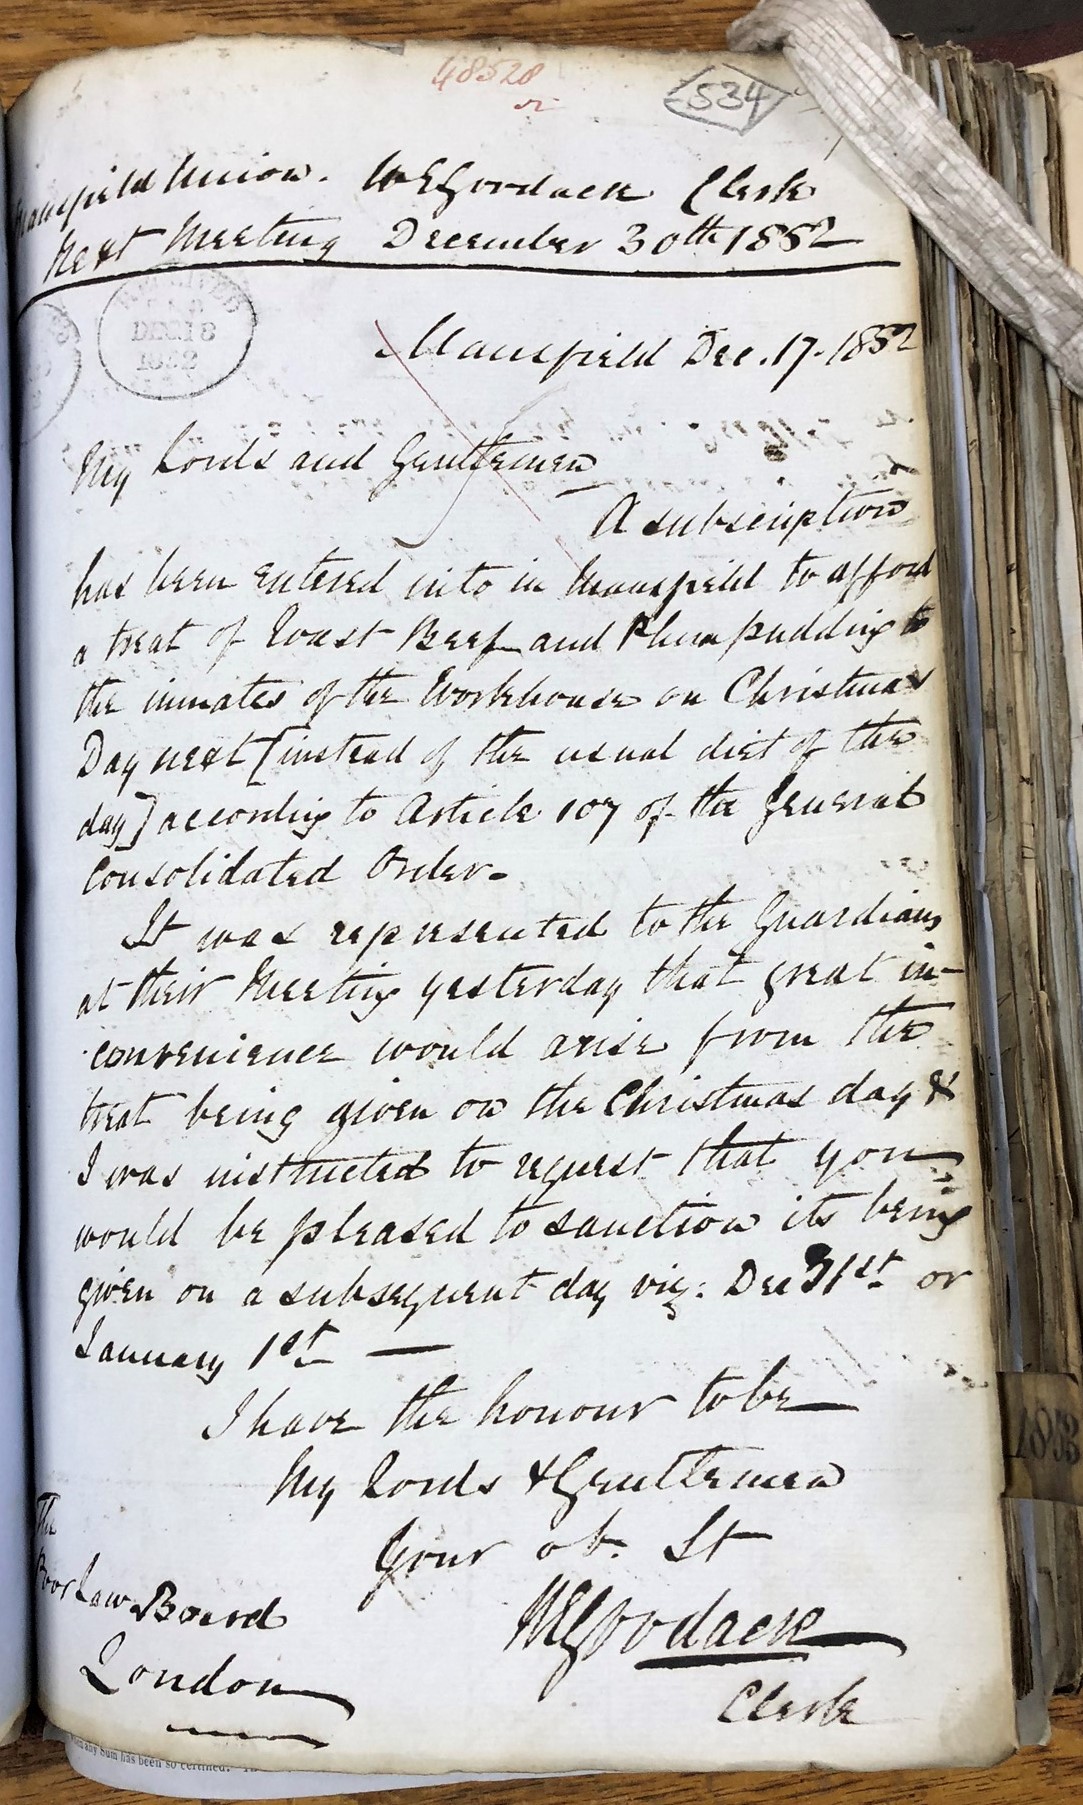 48528
534
Mansfield Union. W E Goodacre Clerk
Next Meeting December 30th 1852
RECEIVED
DEC 18
1852
Mansfield Dec. 17. 1852
My Lords and Gentlemen
A subscription
has been entered into in Mansfield to afford
a treat of Roast Beef and Plum pudding to
the inmates of the Workhouse on Christmas
Day next [instead of the usual diet of the
day] according to Article 107 of the General
Consolidated Order.
It was represented to the Guardians
at their Meeting yesterday that great in-
convenience would arise from the
treat being given on the Christmas day &
I was instructed to request that you
would be pleased to sanction its being
given on a subsequent day viz: Dec 31st or
January 1st —
I have the honour to be
My Lords & Gentlemen
Your ob. St
W E Goodacre
Clerk
The
Poor Law Board
London
any Sum has been so certified.